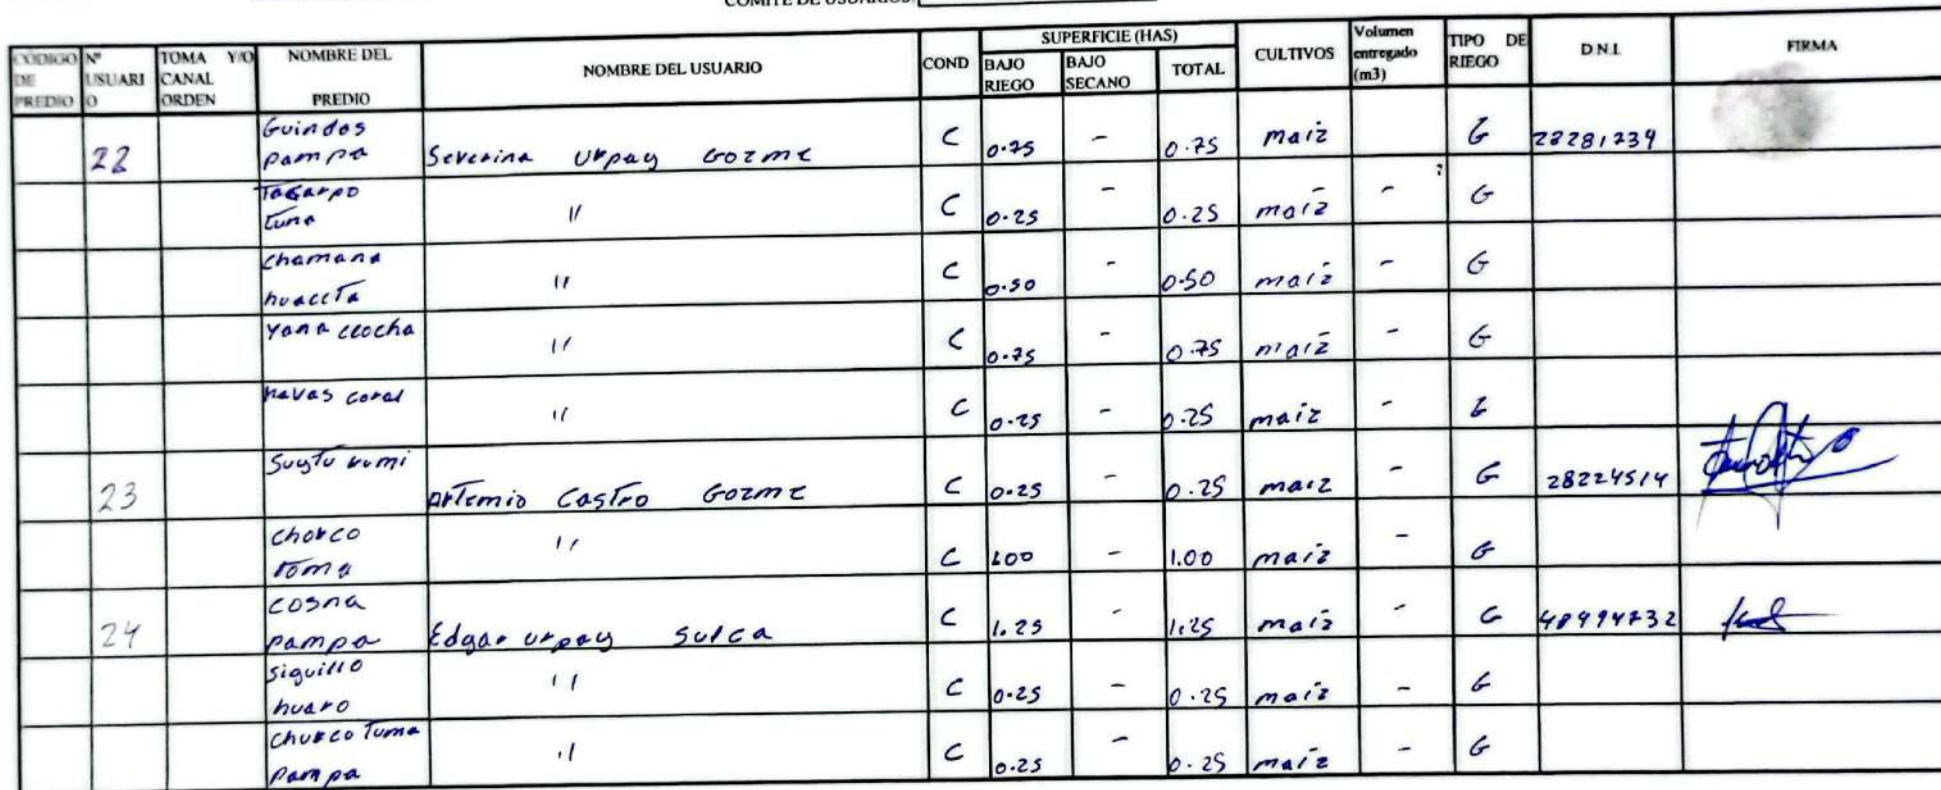 COMITE DE USUARIOS:
CÓDIGO DE PREDIO | Nº USUARIO | TOMA Y/O CANAL ORDEN | NOMBRE DEL PREDIO | NOMBRE DEL USUARIO | COND | SUPERFICIE (HAS) BAJO RIEGO | BAJO SECANO | TOTAL | CULTIVOS | Volumen entregado (m3) | TIPO DE RIEGO | D.N.I. | FIRMA
22 | Guindos pampa | Severina Urpay Gozme | C | 0.75 | - | 0.75 | maiz | G | 28281239
tuna | " | C | 0.25 | - | 0.25 | maiz | - | G
chamana huaccta | " | C | 0.50 | - | 0.50 | maiz | - | G
yana ccocha | " | C | 0.75 | - | 0.75 | maiz | - | G
havas coral | " | C | 0.25 | - | 0.25 | maiz | - | G
23 | Suytu rumi | Artemio Castro Gozme | C | 0.25 | - | 0.25 | maiz | - | G | 28224514
chorco toma | " | C | 1.00 | - | 1.00 | maiz | - | G
24 | cosna pampa | Edgar urpay sulca | C | 1.25 | - | 1.25 | maiz | - | G
siguillo huaro | " | C | 0.25 | - | 0.25 | maiz | - | G
churco Tuma pampa | " | C | 0.25 | - | 0.25 | maiz | - | G